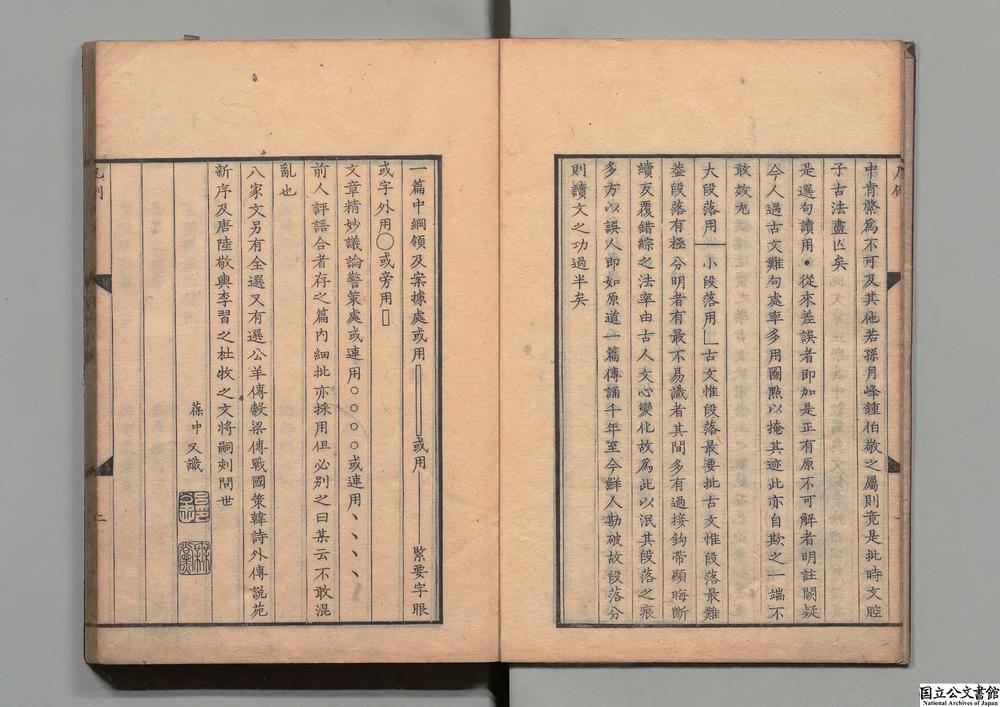 中肯綮爲不可及其他若孫月峰鍾伯敬之屬則竟是批時文腔
子古法盡亾矣
是選句讀用•從來差誤者即加是正有原不可解者明註闕疑
今人遇古文難句處率多用圈點以掩其迹此亦自欺之一端不
敢效尤
大段落用——小段落用∟古文惟段落最要批古文惟段落最難
葢段落有極分明者有最不易識者其間多有過接鈎帶顯晦斷
續反覆錯綜之法率由古人文心變化故爲此以泯其段落之痕
多方以誤人即如原道一篇傳誦千年至今鮮人勘破故段落分
則讀文之功過半矣
凡例
一
一篇中綱領及案據處或用▯或用——緊要字眼
或字外用◯或旁用▯
文章精妙議論警策處或連用○○○○或連用丶丶丶丶
前人評語合者存之篇內細批亦採用但必別之曰某云不敢混
亂也
八家文另有全選又有選公羊傳穀梁傳戰國策韓詩外傳說苑
新序及唐陸敬輿李習之杜牧之文將嗣刻問世
葆中又識
凡例
二
国立公文書館
National Archives of Japan